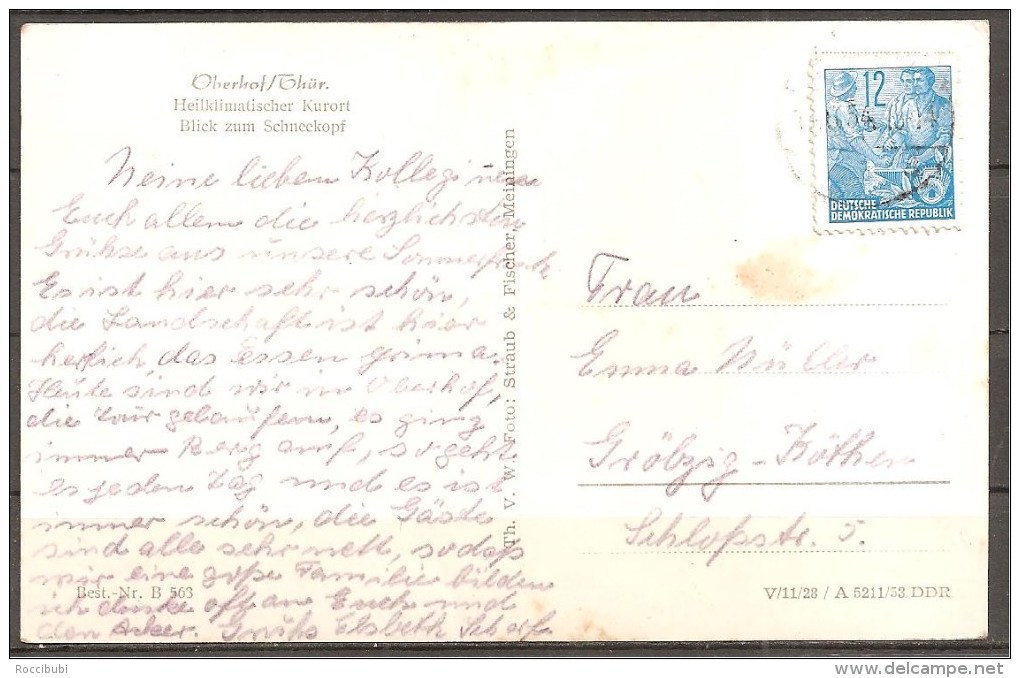 Oberhof/Thür.
Heilklimatischer Kurort
Blick zum Schneekopf
Meine lieben Kolleginnen
Euch allen die herzlichsten
Grüße aus unsere Sommerfrische
Es ist hier sehr schön,
die Landschaft ist hier
herlich, das Essen prima.
Heute sind wir in Oberhof,
die Tour gelaufen, es ging
immer Berg auf, so geht
es jeden Tag und es ist
immer schön, die Gäste
sind alle sehr nett, sodaß
wir eine große Familie bilden
ich denke oft an Euch und
den Acker. Gruß Elsbeth
Best.-Nr. B 563
Th. V. W. Foto: Straub & Fischer, Meiningen
12
DEUTSCHE
DEMOKRATISCHE REPUBLIK
Frau
Emma Müller
Gröbzig-Köthen
Schloßstr. 5.
V/11/28 / A 5211/53 DDR
Roccibubi
delcampe.net